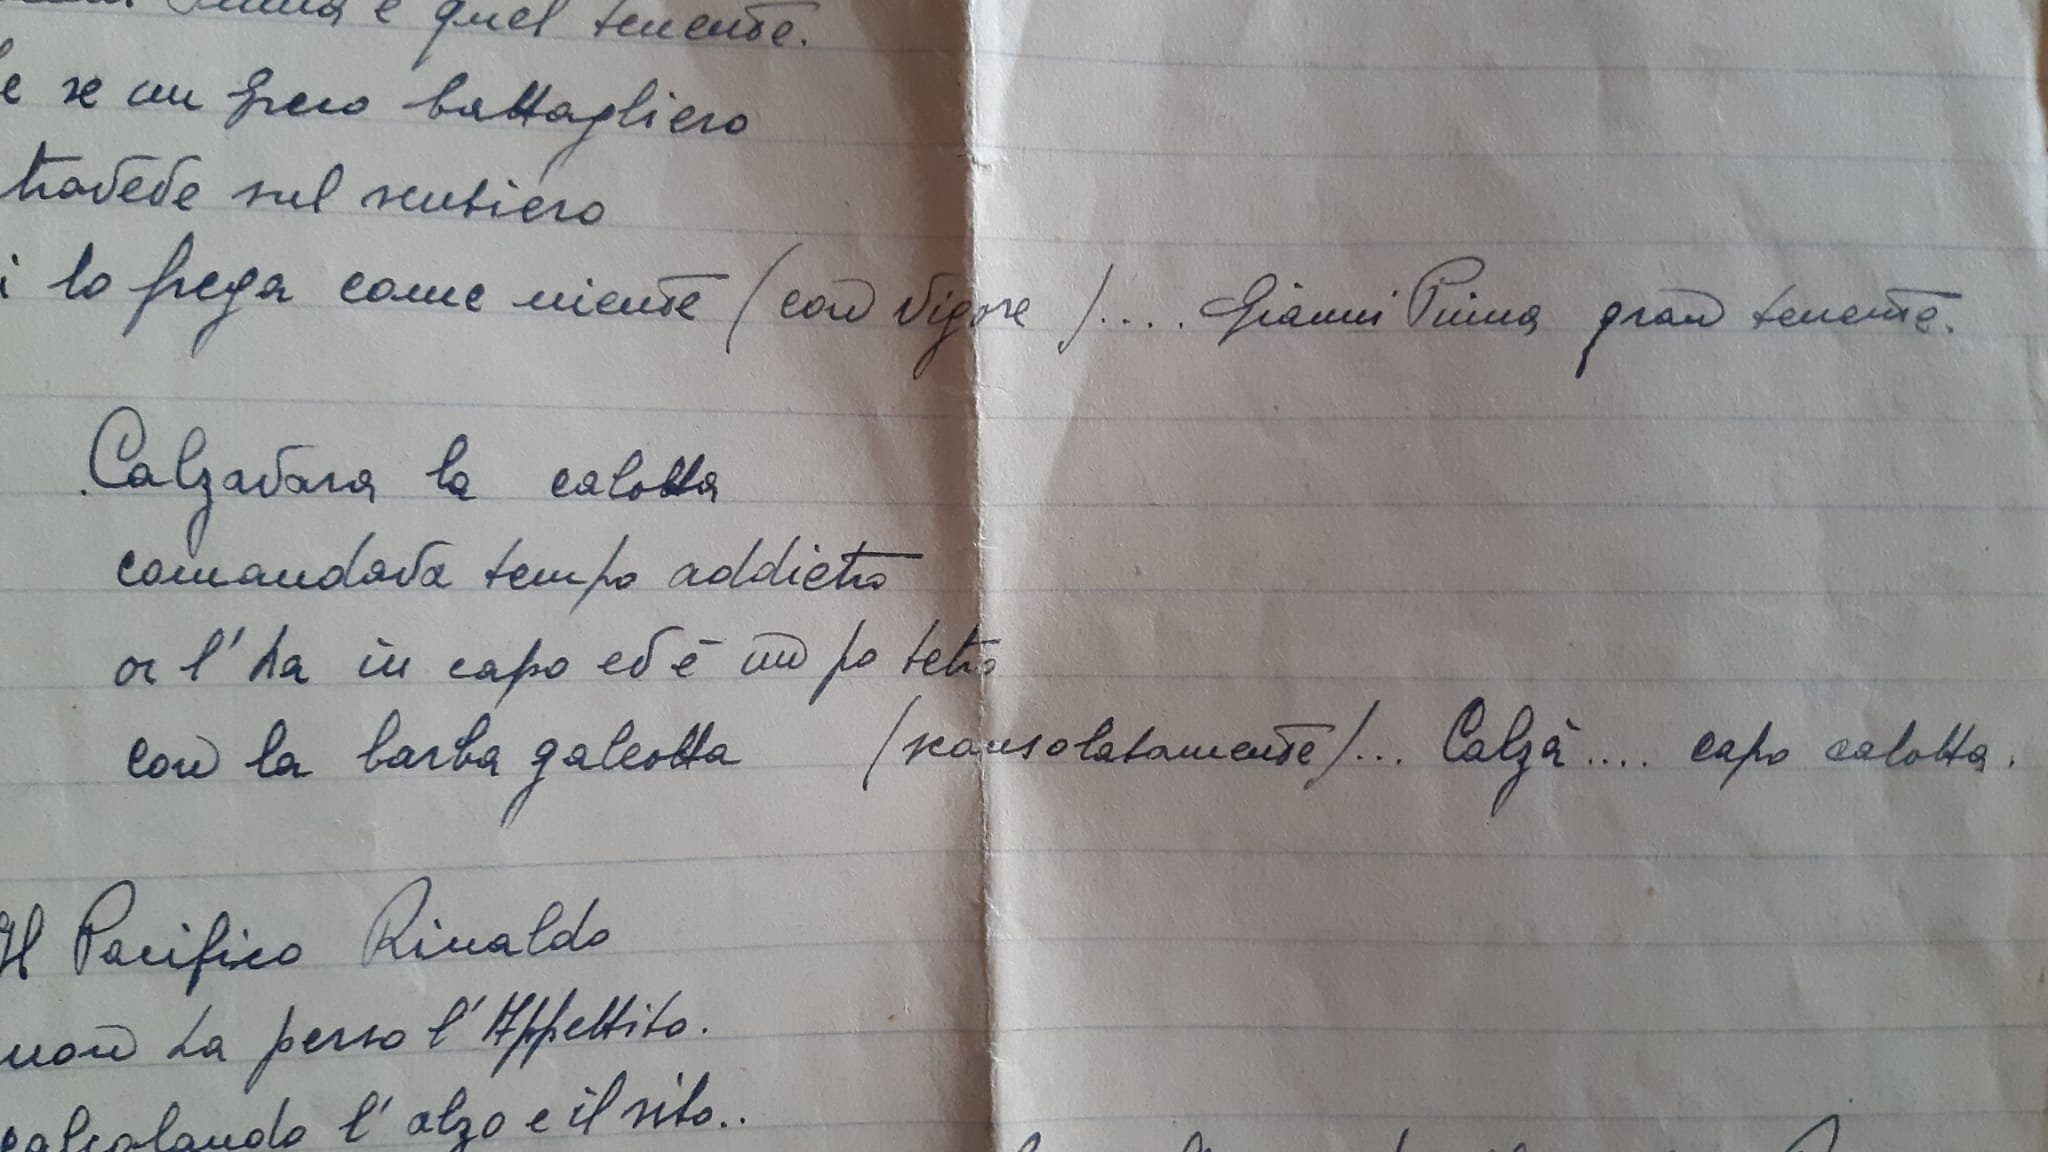 Pinna e quel tenente.
e se un greco battagliero
travede sul sentiero
i lo frega come niente (con vigore).... Gianni Pinna gran tenente.
Calzavara la calotta
comandava tempo addietro
or l'ha in capo ed è un po tetro
con la barba galeotta (sconsolatamente)... Calzà.... capo calotta.
Il Pacifico Rinaldo
non ha perso l'Appettito.
calcolando l'alzo e il sito..